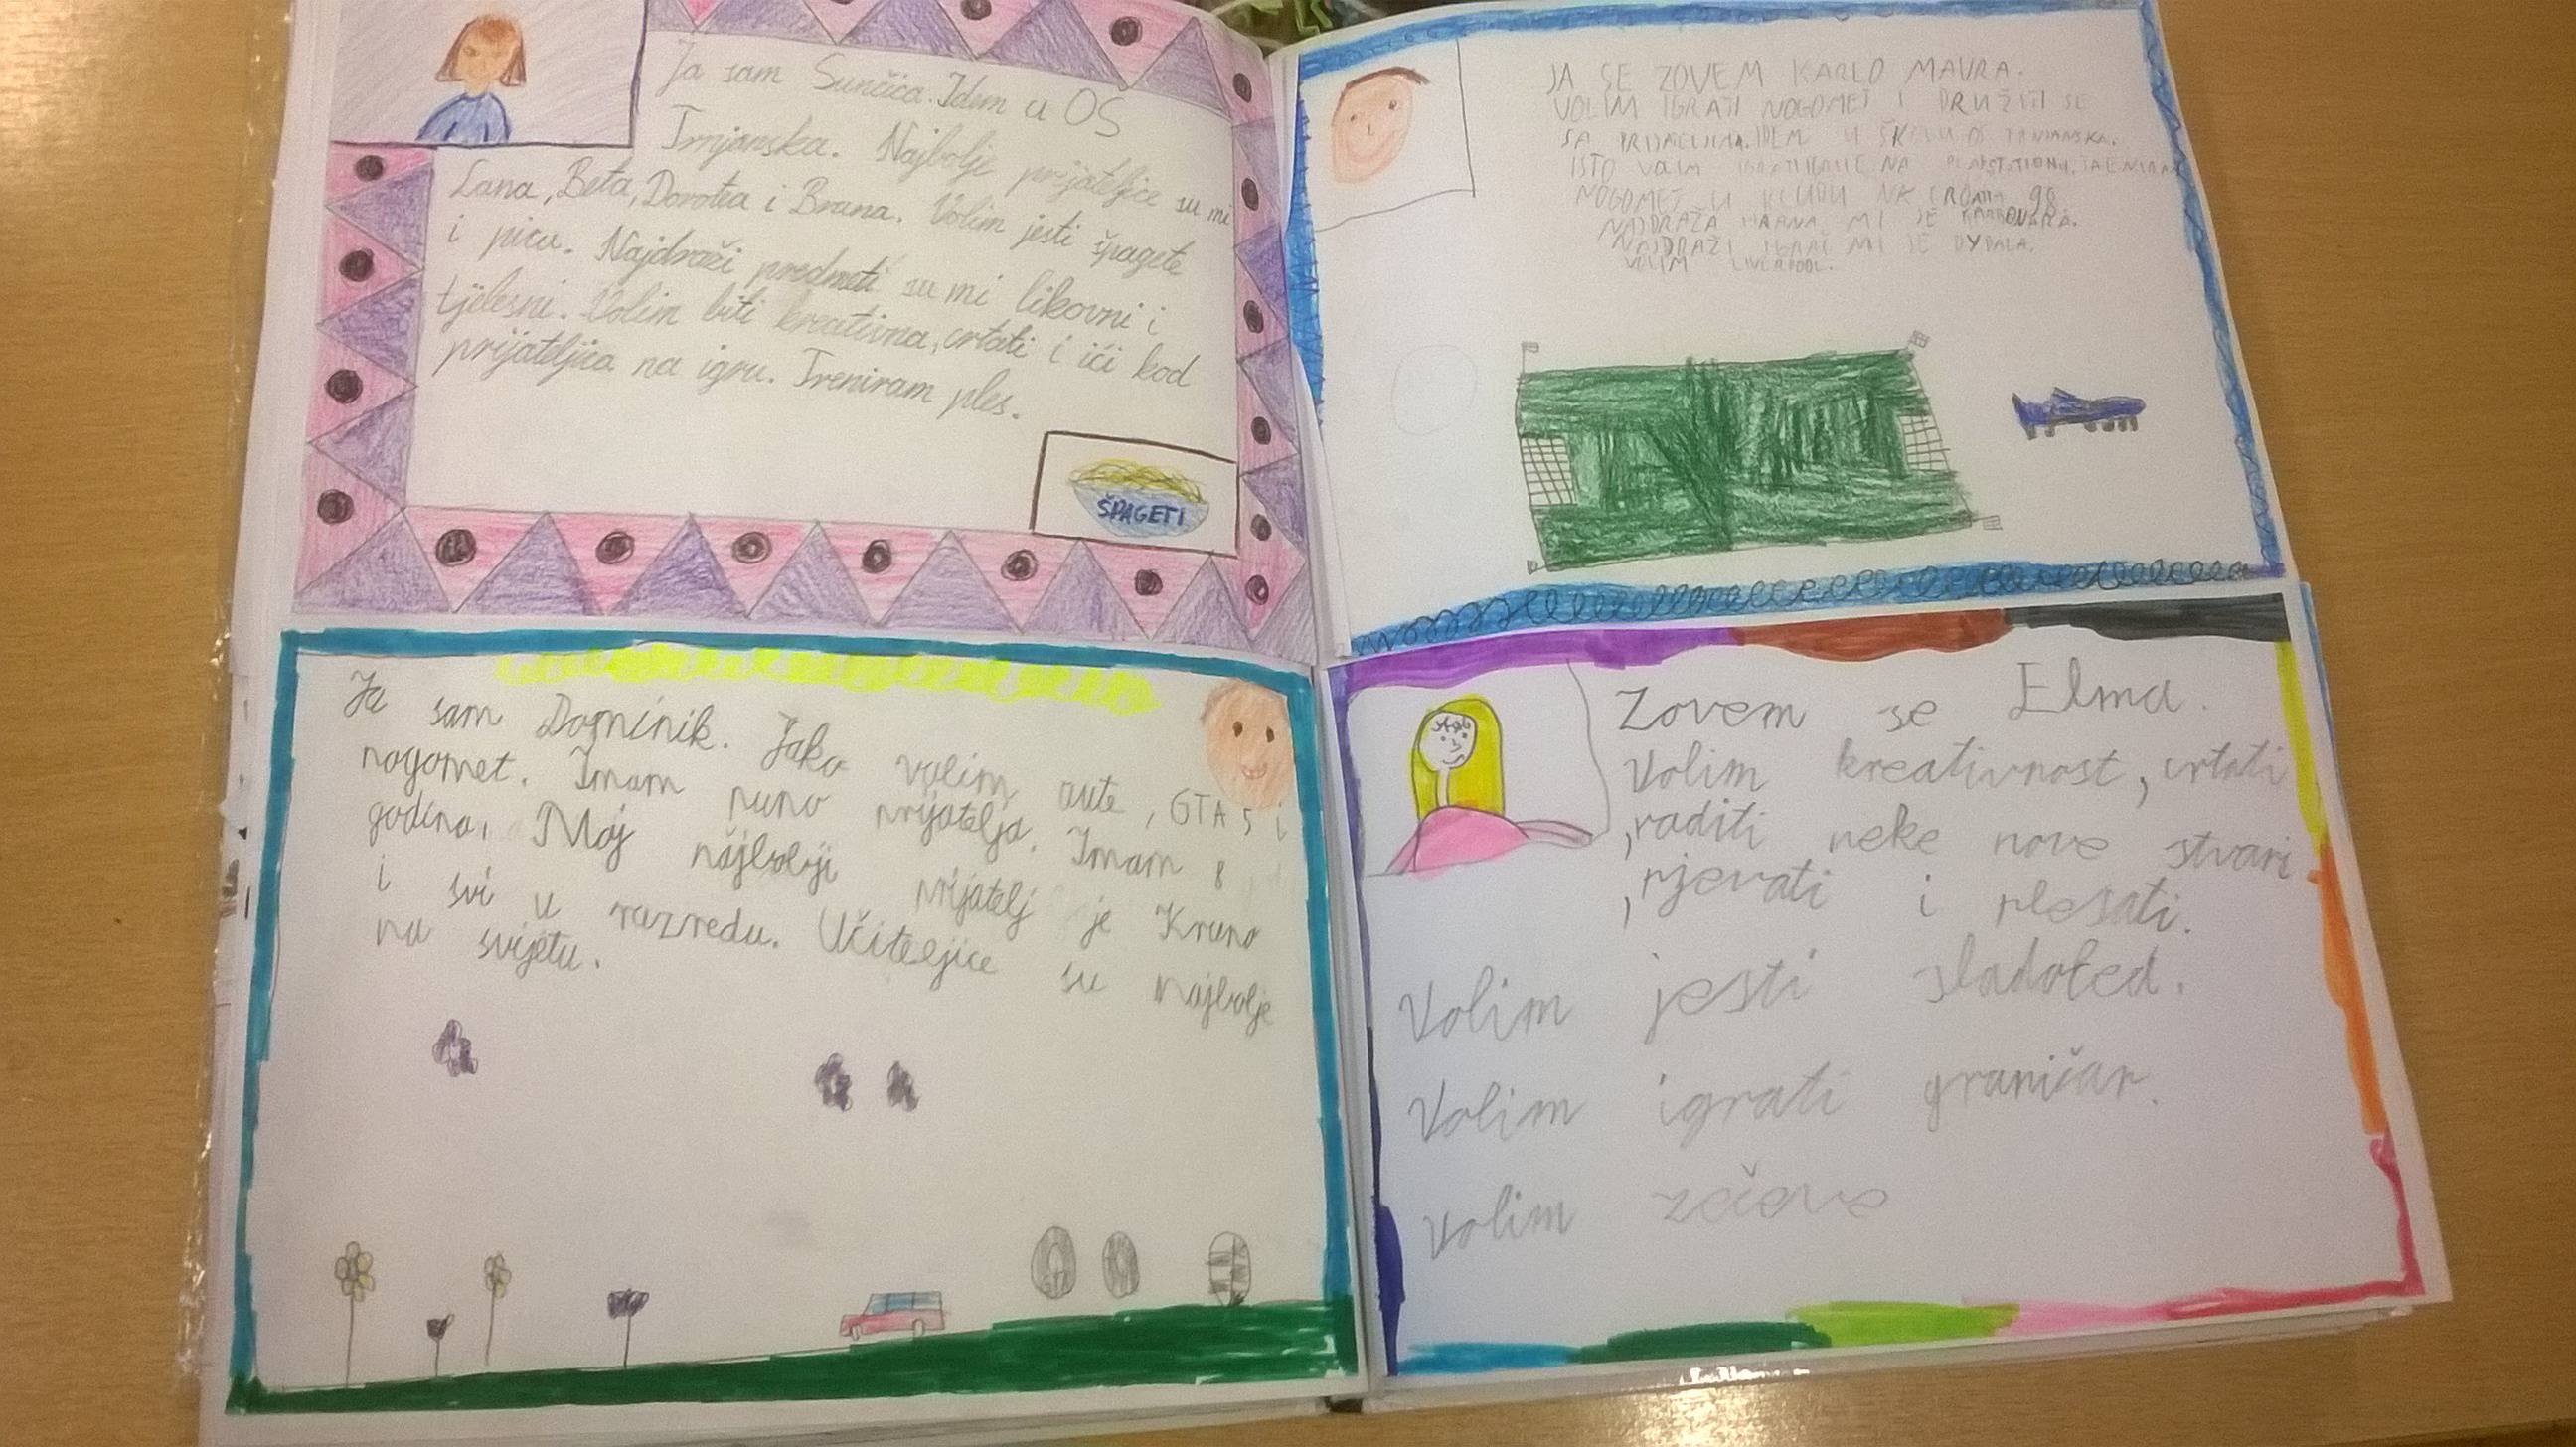 Ja sam Sunčica. Idem u OŠ
Trnjanska. Najbolje prijateljice su mi
Lana, Beta, Dorotea i Brana. Volim jesti špagete
i picu. Najdraži predmeti su mi likovni i
tjelesni. Volim biti kreativna, crtati i ići kod
prijateljica na igru. Treniram ples.
ŠPAGETI
JA SE ZOVEM KARLO MAVRA.
VOLIM IGRATI NOGOMET I DRUŽITI SE
SA PRIJATELJIMA. IDEM U ŠKOLU OŠ TRNJANSKA.
ISTO VOLIM IGRATI IGRICE NA PLAYSTATIONU. TRENIRAM
NOGOMET U KLUBU NK CROATIA 98.
NAJDRAŽA HRANA MI JE KARBONARA.
NAJDRAŽI IGRAČ MI JE DYBALA.
VOLIM LIVERPOOL.
Ja sam Dominik. Jako volim aute, GTA 5 i
nogomet. Imam puno prijatelja. Imam 8
godina. Moj najbolji prijatelj je Kruno
i svi u razredu. Učiteljice su najbolje
na svijetu.
Zovem se Elma.
Volim kreativnost, crtati
, raditi neke nove stvari
, pjevati i plesati.
Volim jesti sladoled.
Volim igrati graničar.
Volim zečeve